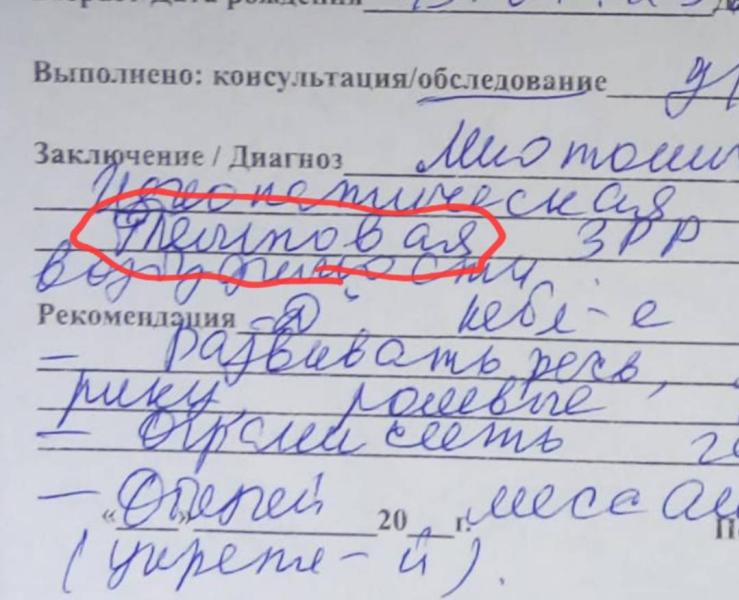 Выполнено: консультация/обследование
Заключение / Диагноз Миотони
Идиопатическая
Темповая ЗРР
возбудимости
Рекомендация
- развивать речь,
рику, ролевые
- Ограничить
- Общий массаж
"__" 20__ г.
(укрепл-й).